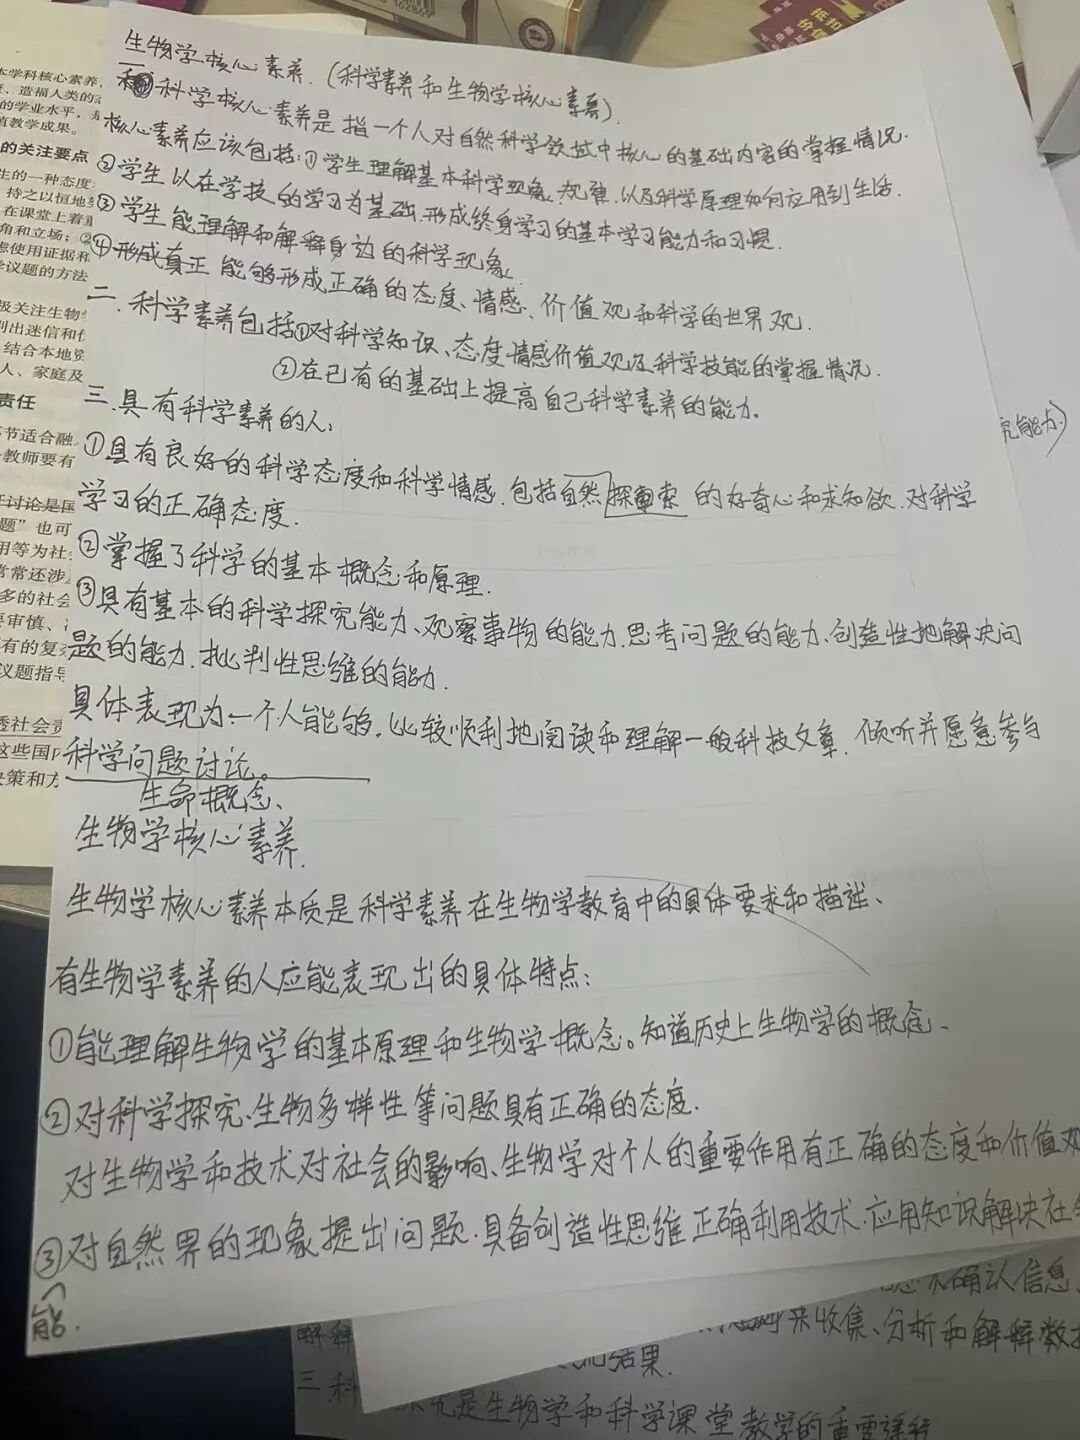 生物学核心素养.（科学素养和生物学核心素养）.
一 科学核心素养是指一个人对自然科学领域中核心的基础内容的掌握情况.
核心素养应该包括:①学生理解基本科学现象、规律.以及科学原理如何应用到生活.
②学生以在学技的学习为基础.形成终身学习的基本学习能力和习惯.
③学生能理解和解释身边的科学现象.
④形成真正 能够形成正确的态度、情感、价值观和科学的世界观.
二.科学素养包括①对科学知识、态度情感价值观及科学技能的掌握情况.
②在已有的基础上提高自己科学素养的能力。
三.具有科学素养的人:
①具有良好的科学态度和科学情感.包括自然探索的好奇心和求知欲.对科学
学习的正确态度.
②掌握了科学的基本概念和原理.
③具有基本的科学探究能力、观察事物的能力.思考问题的能力、创造性地解决问
题的能力.批判性思维的能力.
具体表现为:一个人能够.比较顺利地阅读和理解一般科技文章.倾听并愿意参与
科学问题讨论。
生命概念、
生物学核心素养.
生物学核心素养本质是科学素养在生物学教育中的具体要求和描述、
有生物学素养的人应能表现出的具体特点:
①能理解生物学的基本原理和生物学概念。知道历史上生物学的概念、
②对科学探究、生物多样性等问题具有正确的态度.
对生物学和技术对社会的影响、生物学对个人的重要作用有正确的态度和价值观
③对自然界的现象提出问题.具备创造性思维正确利用技术.应用知识解决社会
能.
究能力)
本学科核心素养,
造福人类的
的学业水平,
教学成果。
的关注要点
生的一种态度
持之以恒地
在课堂上着重
角和立场;②
虑使用证据和
学议题的方法
极关注生物
别出迷信和
结合本地
人、家庭及
责任
环节适合融
教师要有
讨论是国
题”也可
用等为社会
常常还涉
多的社会
要审慎、
有的复杂
议题指导
透社会责
这些国内
决策和方
来确认信息、
来收集、分析和解释数据
解释
结果.
三.科 究是生物学和科学课堂教学的重要途径